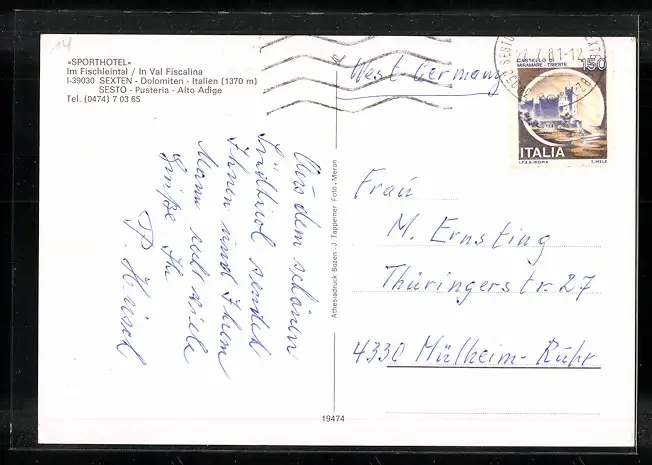 14
«SPORTHOTEL»
Im Fischleintal / In Val Fiscalina
I-39030 SEXTEN - Dolomiten - Italien (1370 m)
SESTO - Pusteria - Alto Adige
Tel. (0474) 7 03 65
Aus dem schönen
Südtirol sendet
Ihnen und Ihrem
Mann recht viele
Grüße Ihr
P.
Athesiadruck Bozen - J. Tappeiner Foto - Meran
19474
West Germany
CASTELLO DI
MIRAMARE - TRIESTE
150
ITALIA
I.P.Z.S.-ROMA
T. MELE
7.81-12
SESTO
Frau
M. Ernsting
Thüringerstr. 27
4330 Mülheim-Ruhr